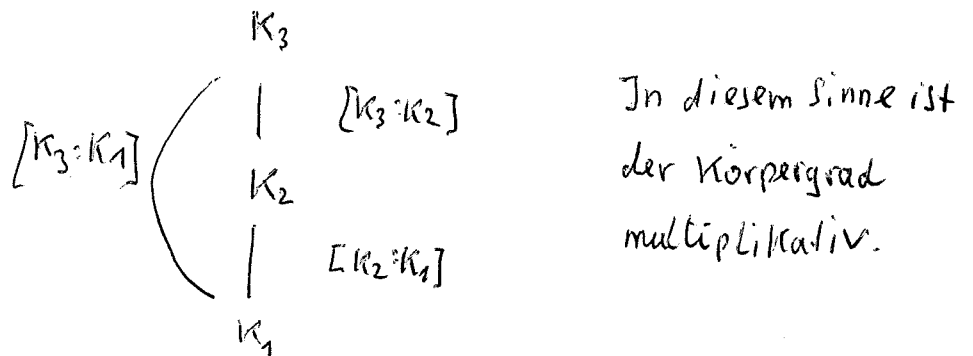 K3
[K3:K2]
[K3:K1]
K2
[K2:K1]
K1
In diesem Sinne ist
der Körpergrad
multiplikativ.